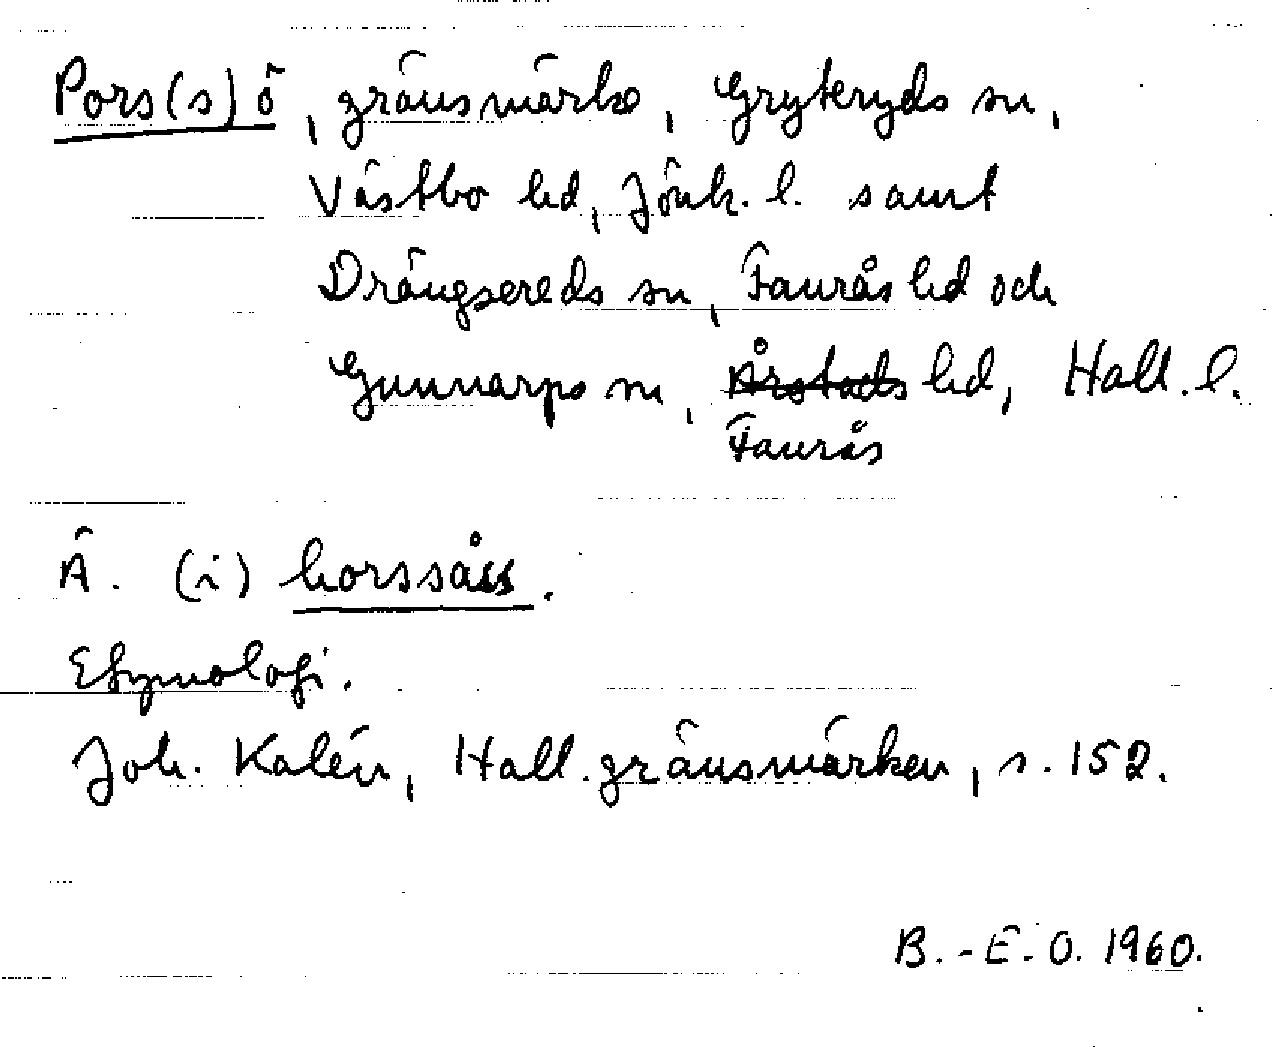 Pors(s)ö, gränsmärke, Gryteryds sn,
Västbo hd, Jönk. l. samt
Drängsereds sn, Faurås hd och
Gunnarps sn, Årstads hd, Hall. l.
Faurås
Ä. (i) horssåss.
Etymologi.
Joh. Kalén, Hall. gränsmärken, s. 152.
B.-E. O. 1960.